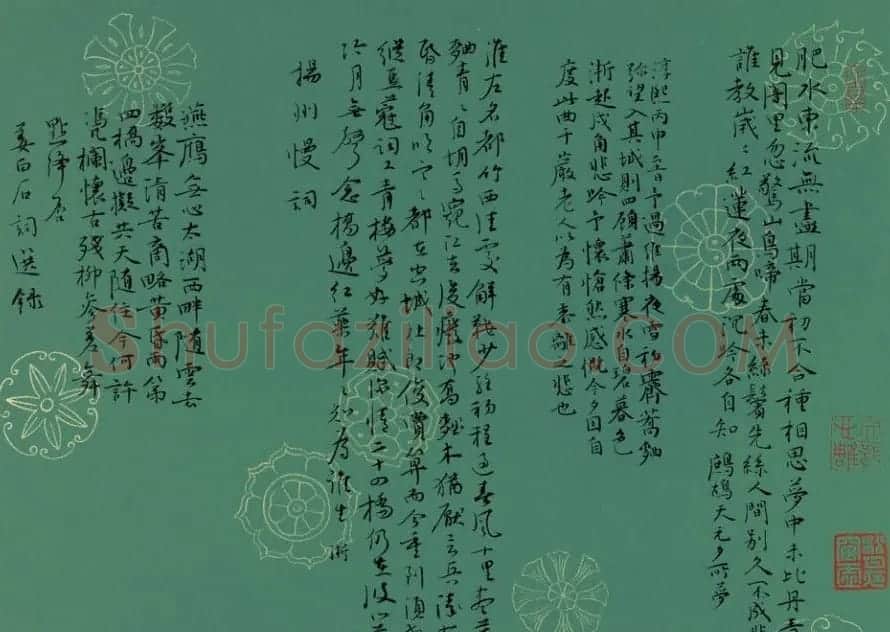 肥水東流無盡期當初不合種相思夢中未比丹青
見闇里忽驚山鳥啼 春未綠鬢先絲人間別久不成悲
誰教歲〻紅蓮夜兩處沉吟各自知 鷓鴣天元夕所夢
淳熙丙申至日予過維揚夜雪初霽薺麰
弥望入其城則四顧蕭條寒水自碧暮色
漸起戍角悲吟予懷愴然感慨今夕因自
度此曲千巖老人以為有黍離之悲也
淮左名都竹西佳處解鞍少駐初程過春風十里盡薺
麰青〻自胡馬窺江去後廢池喬木猶厭言兵漸
昏清角吹寒都在空城杜郎俊賞算而今重到須
縱豆蔻詞工青樓夢好難賦深情二十四橋仍在波心
冷月無聲念橋邊紅藥年〻知為誰生
揚州慢詞
燕鴈無心太湖西畔隨雲去
數峯清苦商略黃昏雨第
四橋邊擬共天隨住今何許
憑欄懷古殘柳參差舞
點絳唇
姜白石詞選錄
Shufaziliao.COM